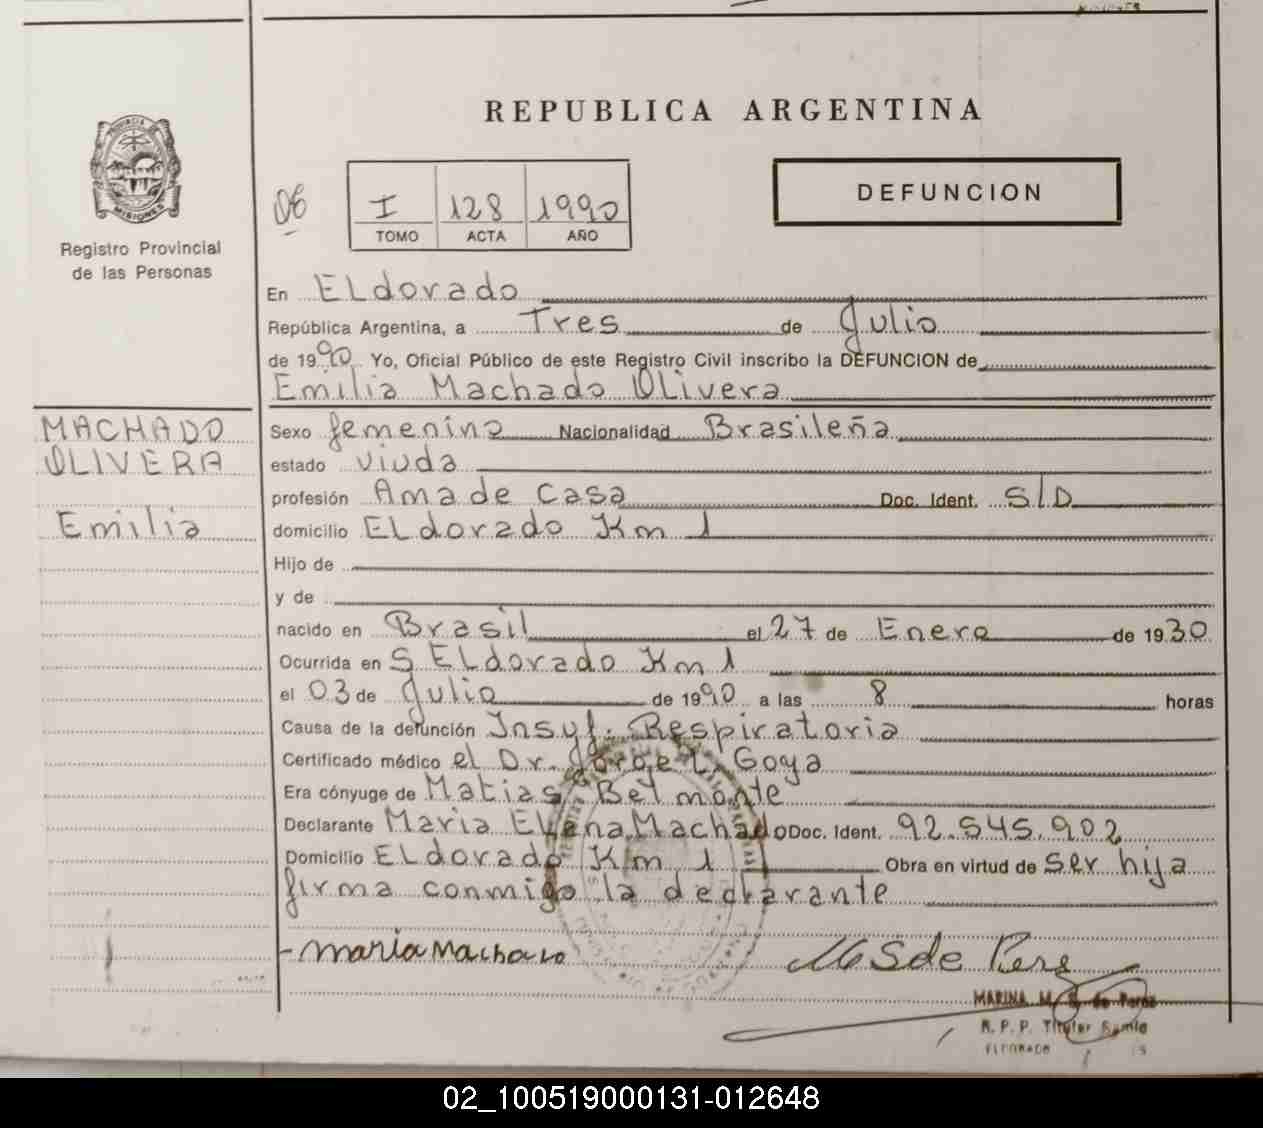 REPUBLICA ARGENTINA
PROVINCIA DE MISIONES
Registro Provincial
de las Personas
06
I 128 1990
TOMO ACTA AÑO
DEFUNCION
En ELdorado
República Argentina, a Tres de Julio
de 1990 Yo, Oficial Público de este Registro Civil inscribo la DEFUNCION de
Emilia Machado OLivera
MACHADO
OLIVERA
Emilia
Sexo femenino Nacionalidad Brasileña
estado viuda
profesión Ama de casa Doc. Ident. S/D
domicilio ELdorado Km 1
Hijo de
y de
nacido en Brasil el 27 de Enero de 1930
Ocurrida en S ELdorado Km 1
el 03 de Julio de 1990 a las 8 horas
Causa de la defunción Insuf. Respiratoria
Certificado médico el Dr. Jorge L. Goya
Era cónyuge de Matias Belmonte
Declarante Maria ELena Machado Doc. Ident. 92.545.902
Domicilio ELdorado Km 1 Obra en virtud de ser hija
firma conmigo la declarante
maria Machado
MARINA M. S. de Perez
R. P. P. Titular
ELDORADO
02_100519000131-012648